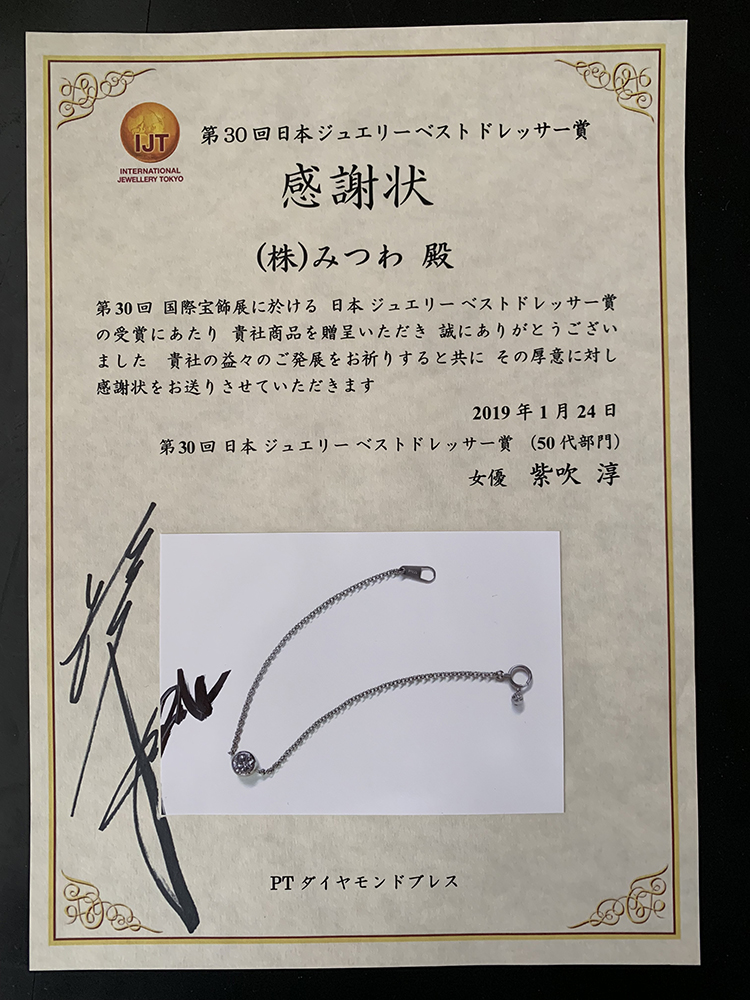 IJT
INTERNATIONAL
JEWELLERY TOKYO
第30回日本ジュエリーベストドレッサー賞
感謝状
(株)みつわ 殿
第30回 国際宝飾展に於ける 日本ジュエリーベストドレッサー賞
の受賞にあたり 貴社商品を贈呈いただき 誠にありがとうござい
ました 貴社の益々のご発展をお祈りすると共に その厚意に対し
感謝状をお送りさせていただきます
2019年1月24日
第30回 日本ジュエリーベストドレッサー賞 (50代部門)
女優 紫吹 淳
PTダイヤモンドブレス